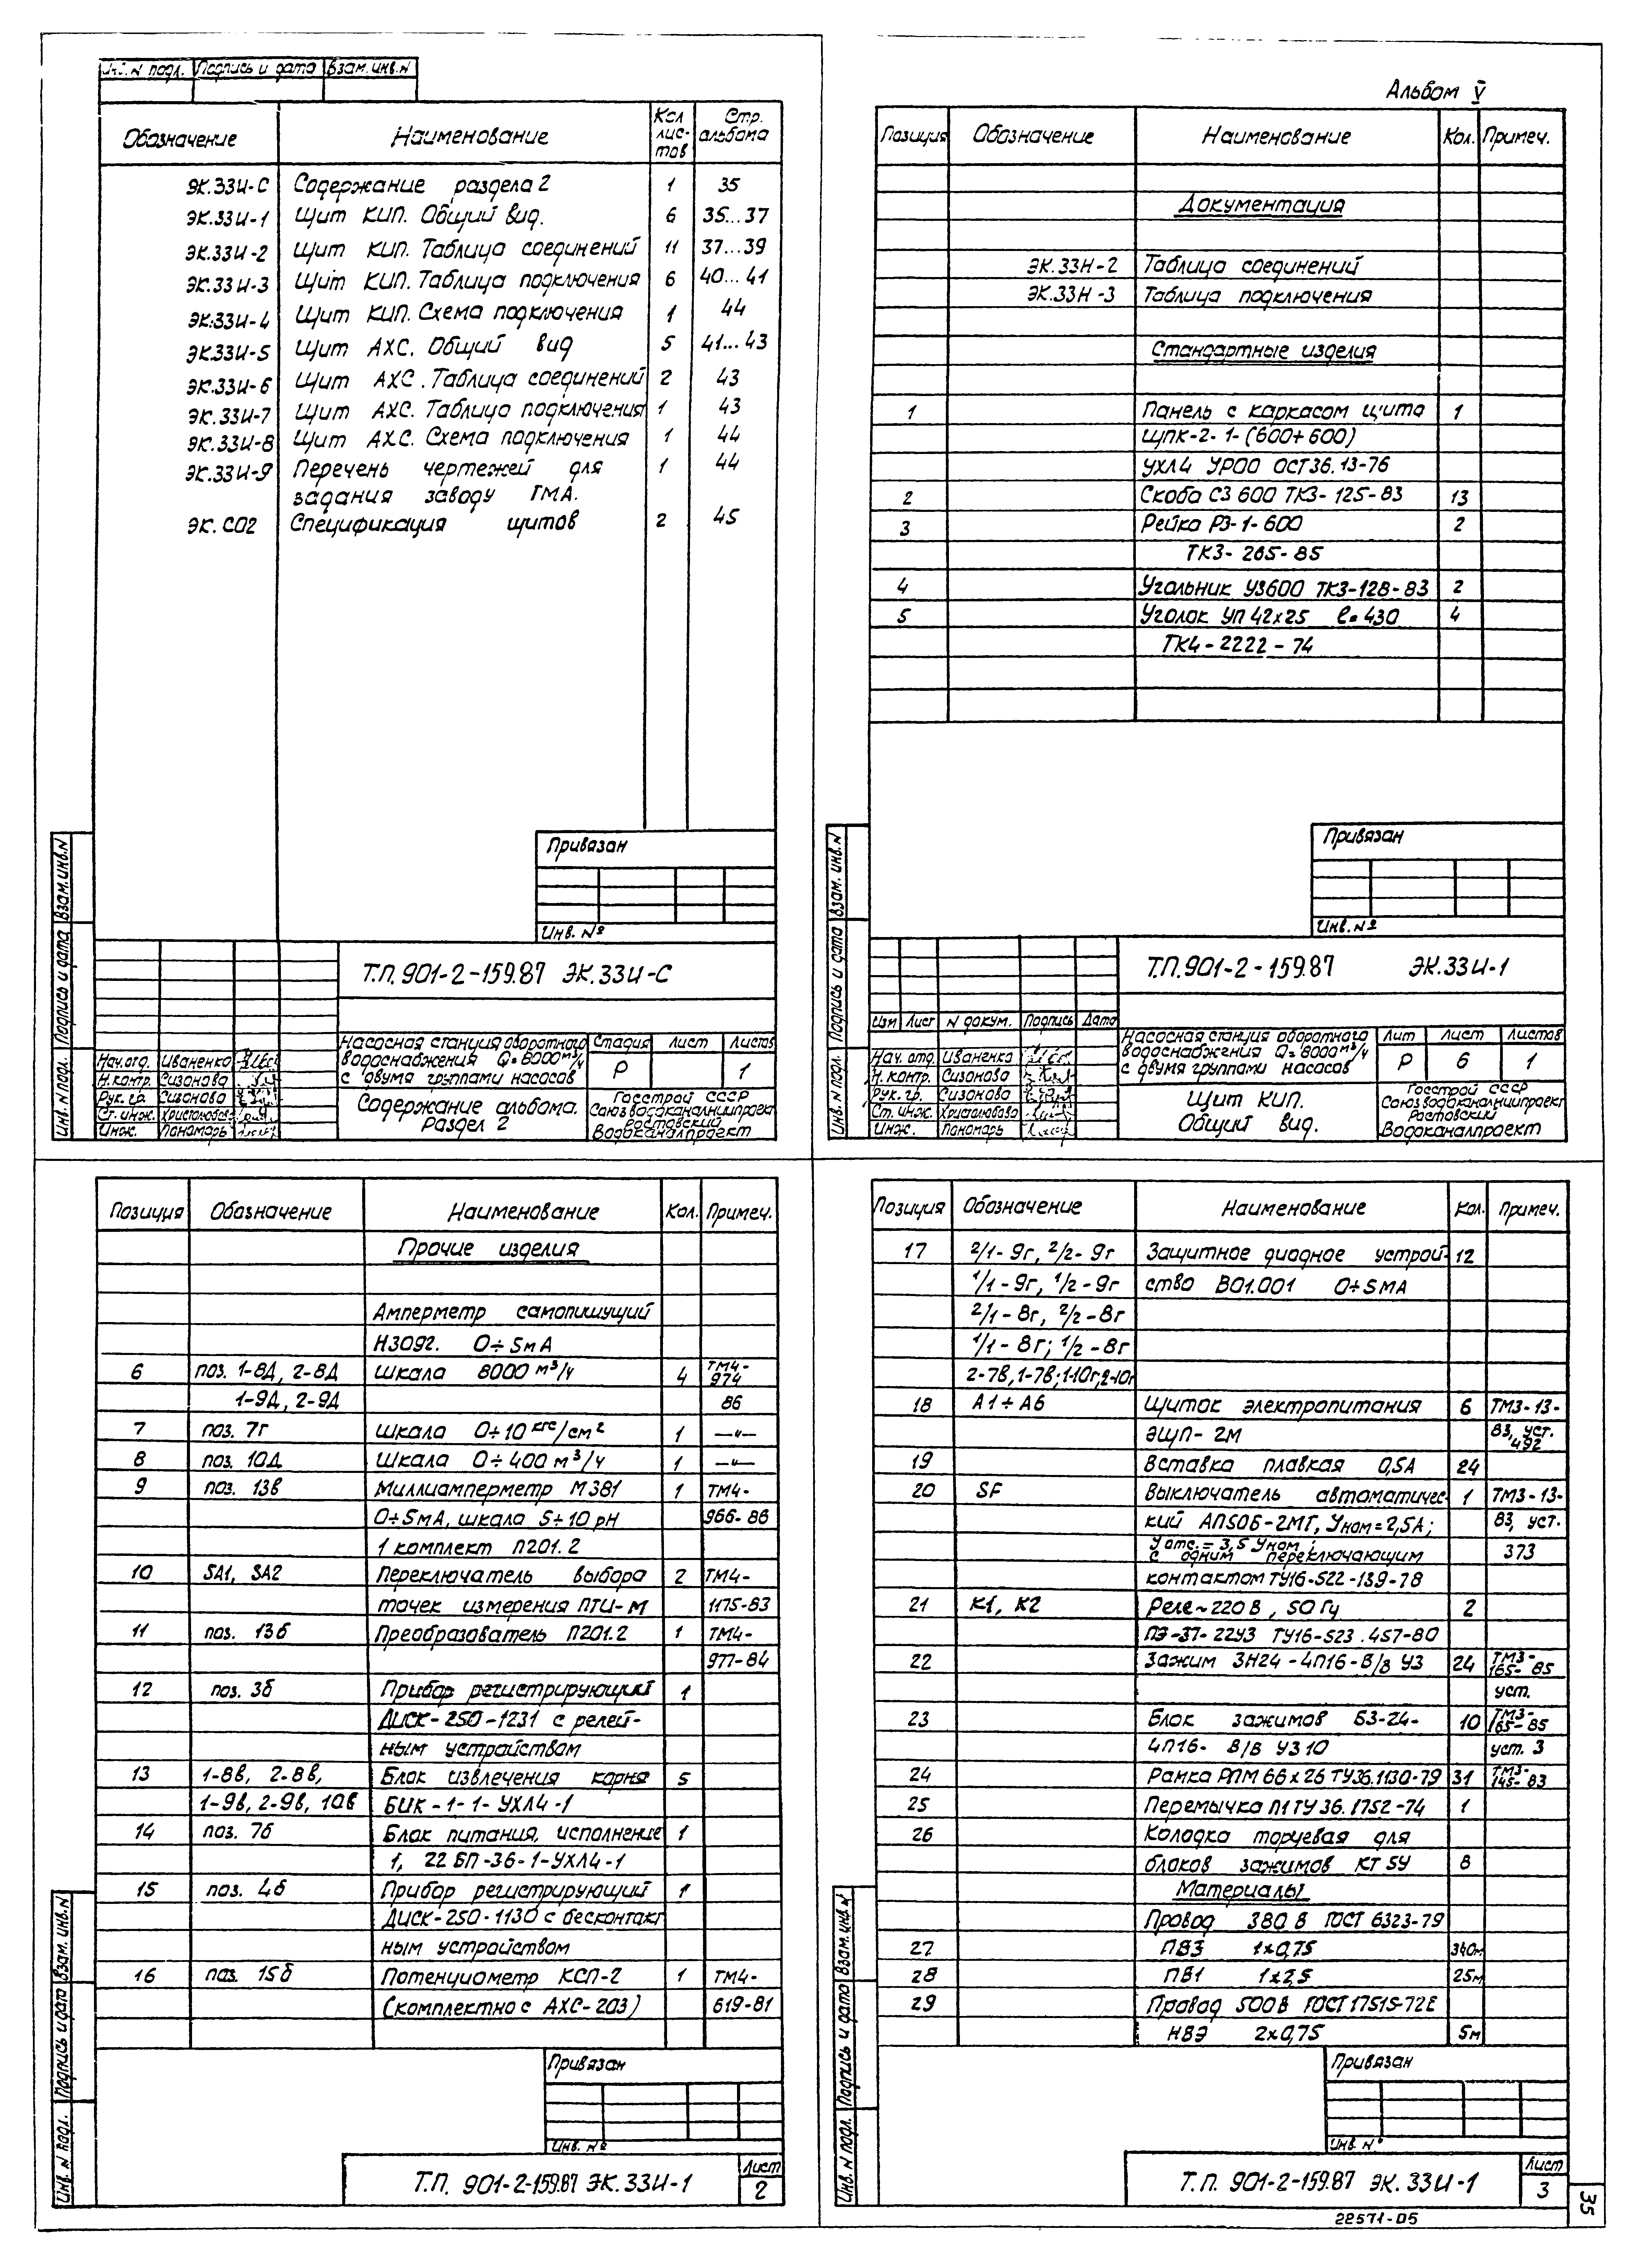 Инв. N подл. Подпись и дата Взам. инв. N
Обозначение Наименование Кол лис-тов Стр. альбома
ЭК.33И-С Содержание раздела 2 1 35
ЭК.33И-1 Щит КИП. Общий вид. 6 35...37
ЭК.33И-2 Щит КИП. Таблица соединений 11 37...39
ЭК.33И-3 Щит КИП. Таблица подключения 6 40...41
ЭК.33И-4 Щит КИП. Схема подключения 1 44
ЭК33И-5 Щит АХС. Общий вид 5 41...43
ЭК.33И-6 Щит АХС. Таблица соединений 2 43
ЭК.33И-7 Щит АХС. Таблица подключения 1 43
ЭК.33И-8 Щит АХС. Схема подключения 1 44
ЭК.33И-9 Перечень чертежей для 1 44
задания заводу ГМА.
ЭК. СО2 Спецификация щитов 2 45
Привязан
Инв. №
Т.П. 901-2-159.87 ЭК.33И-С
Насосная станция оборотного
водоснабжения Q=8000 м³/ч
с двумя группами насосов
Стадия Лист Листов
Р 1
Нач. отд. Иваненко
Н. контр. Сизонова
Рук. гр. Сизонова
Ст. инж. Христолюбова
Инж. Пономарь
Содержание альбома.
Раздел 2
Госстрой СССР
Союзводоканалниипроект
Ростовский
Водоканалпроект
Инв. N подл. Подпись и дата Взам. инв. N
Альбом V
Позиция Обозначение Наименование Кол. Примеч.
Документация
ЭК.33Н-2 Таблица соединений
ЭК.33Н-3 Таблица подключения
Стандартные изделия
1 Панель с каркасом щита 1
ЩПК-2-1-(600+600)
УХЛ4 УРОО ОСТ36.13-76
2 Скоба СЗ 600 ТК3-125-83 13
3 Рейка РЗ-1-600 2
ТК3-265-85
4 Угольник УЗ600 ТК3-128-83 2
5 Уголок УП 42х25 ℓ=430 4
ТК4-2222-74
Привязан
Инв. №
Т.П. 901-2-159.87 ЭК.33И-1
Изм Лист N докум. Подпись Дата
Насосная станция оборотного
водоснабжения Q=8000 м³/ч
с двумя группами насосов
Лит Лист Листов
Р 6 1
Нач. отд. Иваненко
Н. контр. Сизонова
Рук. гр. Сизонова
Ст. инж. Христолюбова
Инж. Пономарь
Щит КИП.
Общий вид.
Госстрой СССР
Союзводоканалниипроект
Ростовский
Водоканалпроект
Инв. N подл. Подпись и дата Взам. инв. N
Позиция Обозначение Наименование Кол. Примеч.
Прочие изделия
Амперметр самопишущий
Н3092. 0÷5мА
6 поз. 1-8Д, 2-8Д Шкала 8000 м³/ч 4 ТМ4-974
1-9Д, 2-9Д 86
7 поз. 7г Шкала 0÷10 кгс/см² 1 —"—
8 поз. 10Д Шкала 0÷400 м³/ч 1 —"—
9 поз. 13в Миллиамперметр М381 1 ТМ4-
0÷5мА, шкала 5÷10 рН 966-86
1 комплект П201.2
10 SA1, SA2 Переключатель выбора 2 ТМ4-
точек измерения ПТИ-М 1175-83
11 поз. 13б Преобразователь П201.2 1 ТМ4-
977-84
12 поз. 3б Прибор регистрирующий 1
ДИСК-250-1231 с релей-
ным устройством
13 1-8в, 2-8в, Блок извлечения корня 5
1-9в, 2-9в, 10в БИК-1-1-УХЛ4-1
14 поз. 7б Блок питания, исполнение 1
1, 22 БП-36-1-УХЛ4-1
15 поз. 4б Прибор регистрирующий 1
ДИСК-250-1130 с бесконтакт
ным устройством
16 поз. 15б Потенциометр КСП-2 1 ТМ4-
(комплектно с АХС-203) 619-81
Привязан
Инв. №
Т.П. 901-2-159.87 ЭК.33И-1
Лист
2
Инв. N подл. Подпись и дата Взам. инв. N
Позиция Обозначение Наименование Кол. Примеч.
17 2/1-9г, 2/2-9г Защитное диодное устрой- 12
1/1-9г, 1/2-9г ство ВО1.001 0÷5мА
2/1-8г, 2/2-8г
1/1-8г; 1/2-8г
2-7в, 1-7в; 1-10г, 2-10г
18 А1÷А6 Щиток электропитания 6 ТМ3-13-
ЭЩП-2М 83, уст. 492
19 Вставка плавкая 0,5А 24
20 SF Выключатель автоматичес- 1 ТМ3-13-
кий АП50Б-2МТ, Уном=2,5А; 83, уст.
Уотс.=3,5 Уном;
с одним переключающим 373
контактом ТУ16-522-139-78
21 К1, К2 Реле ~220В, 50 Гц 2
ПЭ-37-22У3 ТУ16-523.457-80
22 Зажим ЗН24-4П16-В/В У3 24 ТМ3-165-85
уст.
23 Блок зажимов БЗ-24- 10 ТМ3-165-85
4П16- В/В У3 10 уст. 3
24 Рамка РПМ 66х26 ТУ36.1130-79 31 ТМ3-145-83
25 Перемычка П1 ТУ 36.1752-74 1
26 Колодка торцевая для
блоков зажимов КТ 5У 8
Материалы
Провод 380 В ГОСТ 6323-79
27 ПВ3 1х0,75 340м
28 ПВ1 1х2,5 25м
29 Провод 500В ГОСТ 17515-72Е
НВЭ 2х0,75 5м
Привязан
Инв. №
Т.П. 901-2-159.87 ЭК.33И-1
Лист
3
Инв. N подл. Подпись и дата Взам. инв. N
35
22571-05